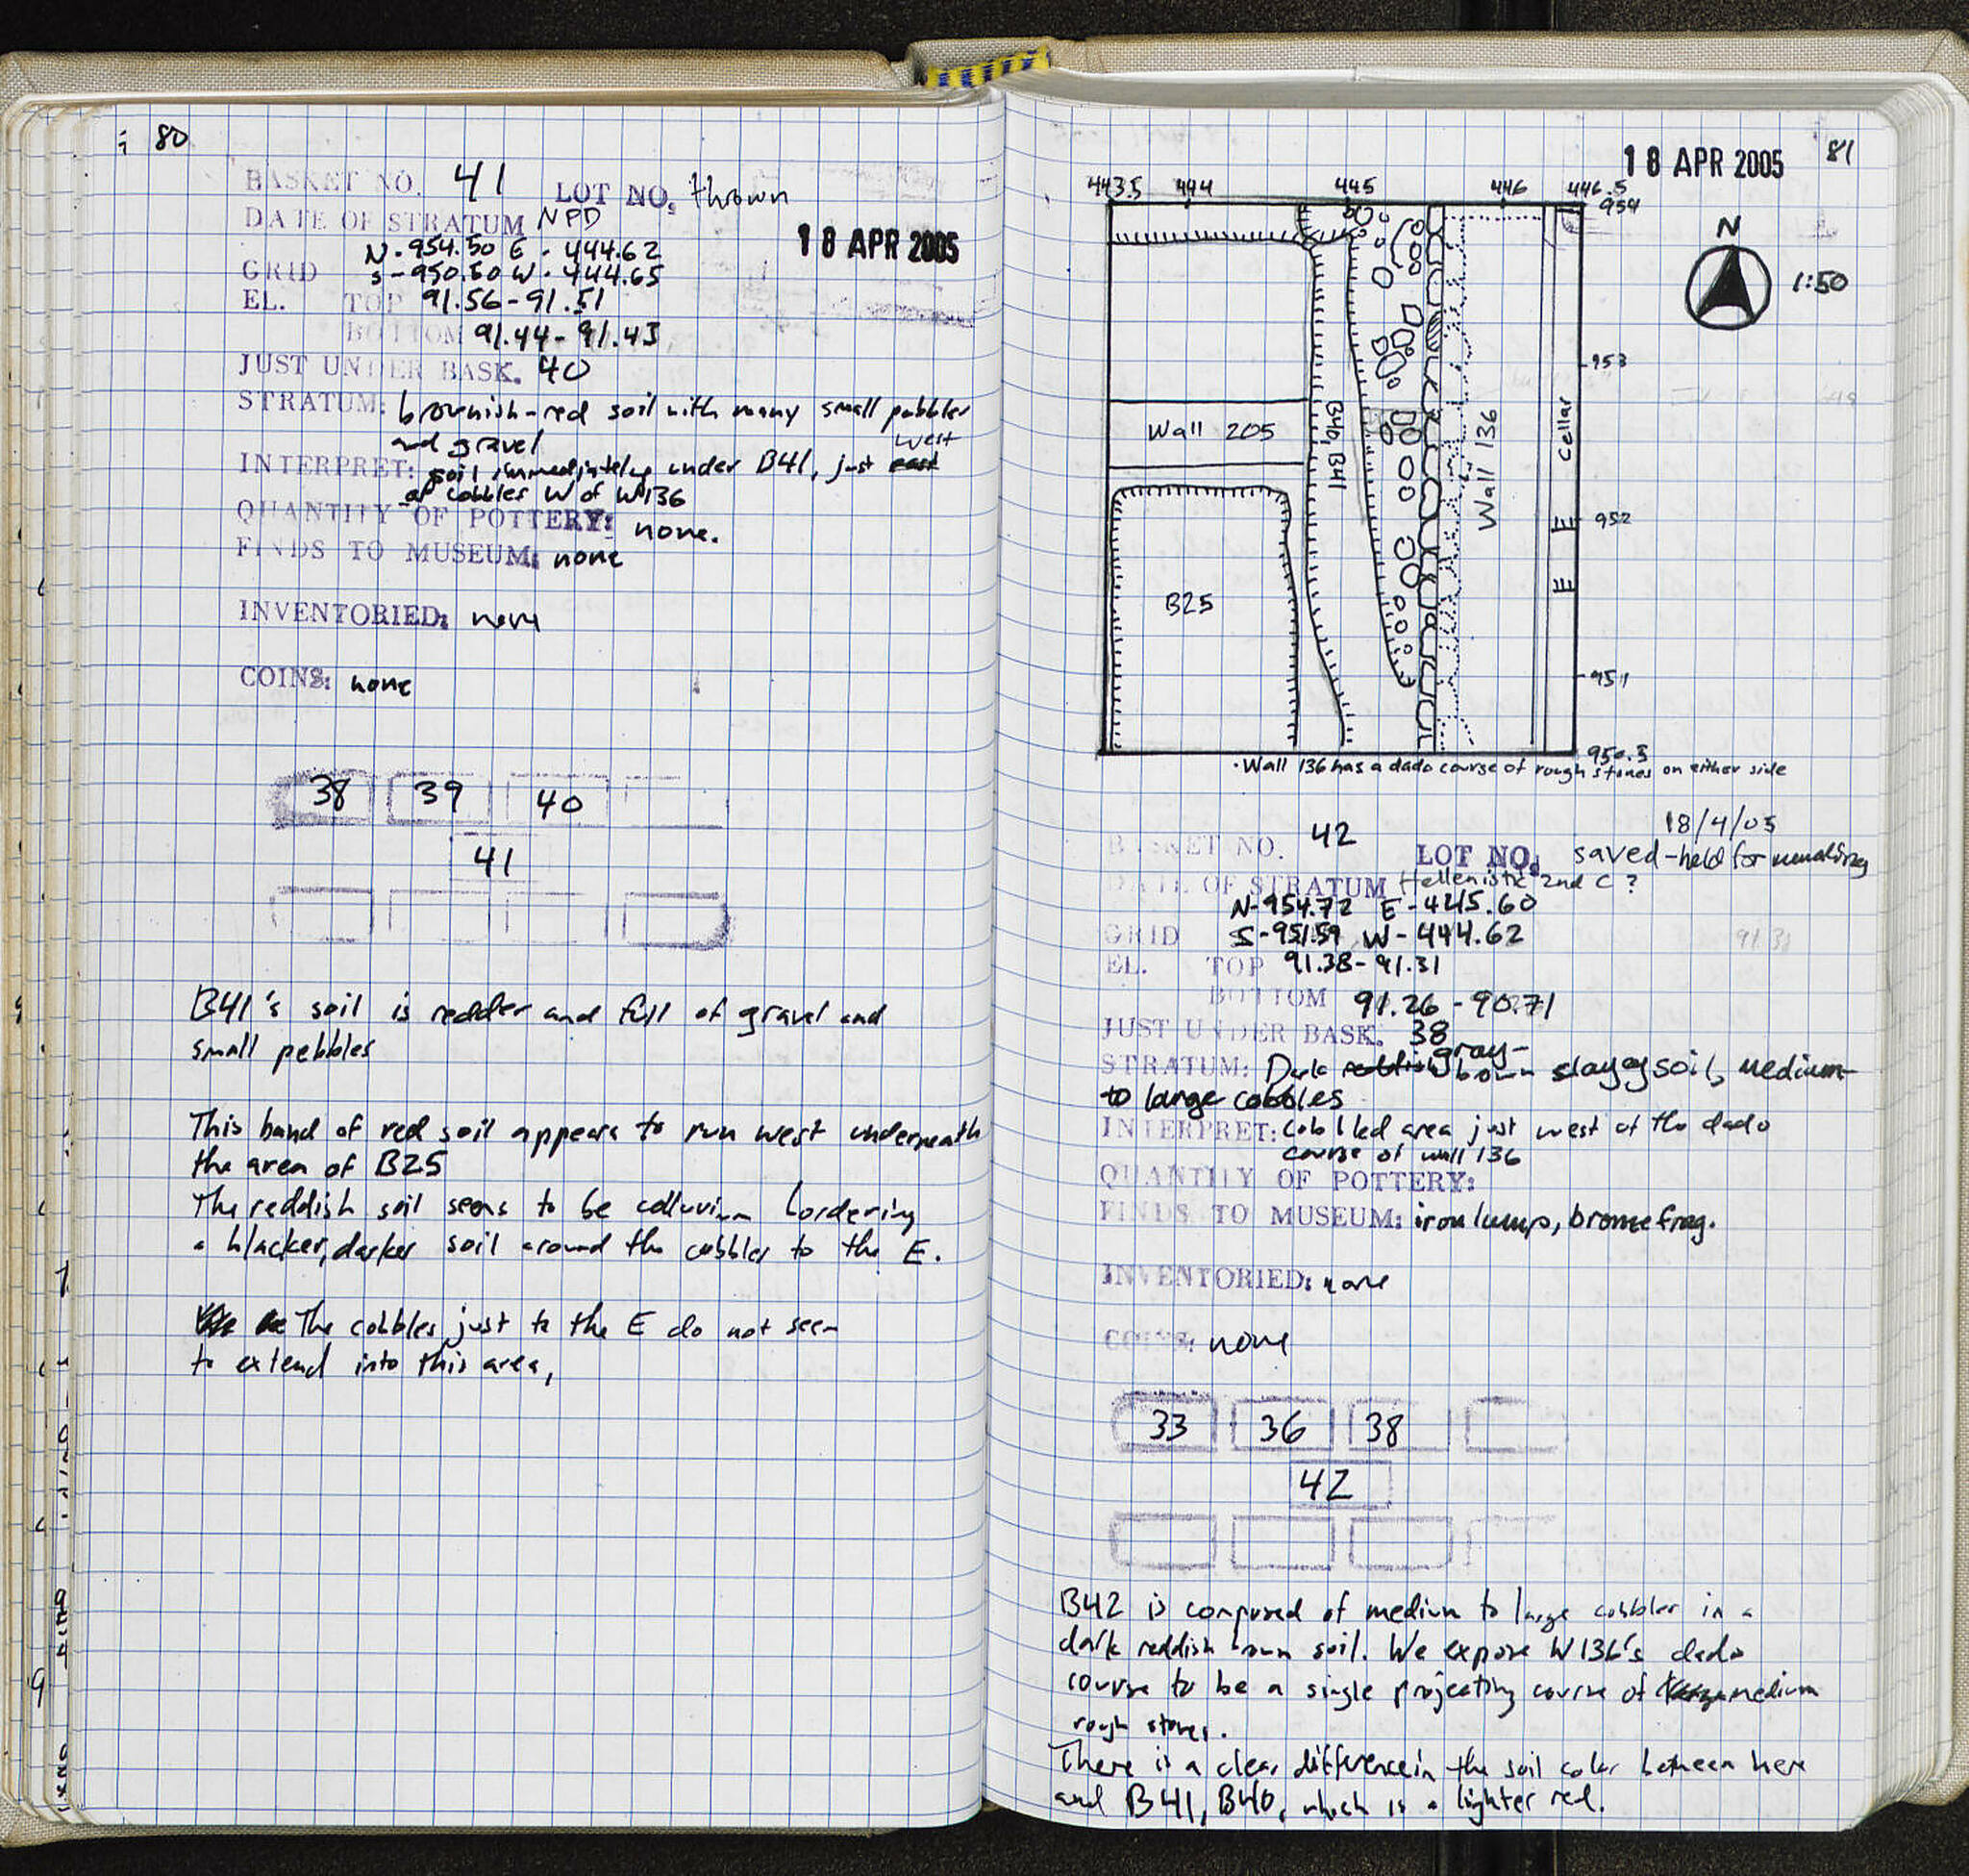 80
BASKET NO. 41 LOT NO. thrown
DATE OF STRATUM NPD
18 APR 2005
N-954.50 E-444.62
GRID S-950.50 W-444.65
EL. TOP 91.56-91.51
BOTTOM 91.44-91.43
JUST UNDER BASK. 40
STRATUM: brownish-red soil with many small pebbles
and gravel
INTERPRET: soil immediately under B41, just east west
of cobbles W of W136
QUANTITY OF POTTERY: none.
FINDS TO MUSEUM: none
INVENTORIED: none
COINS: none
38 39 40
41
B41's soil is redder and full of gravel and
small pebbles
This band of red soil appears to run west underneath
the area of B25
The reddish soil seems to be colluvium bordering
a blacker, darker soil around the cobbles to the E.
The cobbles just to the E do not seem
to extend into this area,
18 APR 2005 81
443.5 444 445 446 446.5
954
N
1:50
953
Wall 205
B40, B41
Wall 136
Cellar
952
B25
951
950.3
·Wall 136 has a dado course of rough stones on either side
18/4/05
BASKET NO. 42 LOT NO. saved-held for
DATE OF STRATUM Hellenistic 2nd C?
N-954.72 E-445.60
GRID S-951.59 W-444.62
91.31
EL. TOP 91.38-91.31
BOTTOM 91.26-90.71
JUST UNDER BASK. 38
STRATUM: Dark reddish gray-brown clayey soil, medium
to large cobbles
INTERPRET: Cobbled area just west of the dado
course of wall 136
QUANTITY OF POTTERY:
FINDS TO MUSEUM: iron lumps, bronze frag.
INVENTORIED: none
COINS: none
33 36 38
42
B42 is composed of medium to large cobbles in a
dark reddish brown soil. We expose W136's dado
course to be a single projecting course of medium
rough stones.
There is a clear difference in the soil color between here
and B41, B40, which is a lighter red.